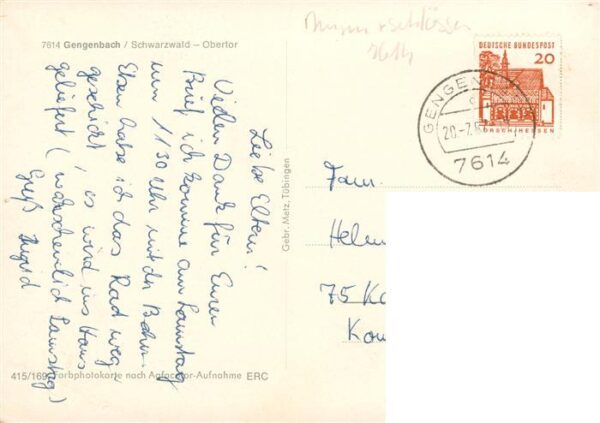 7614 Gengenbach / Schwarzwald — Obertor
DEUTSCHE BUNDESPOST
20
LORSCH/HESSEN
GENGEN
20.-7.6
7614
Liebe Eltern!
Vielen Dank für Euren
Brief, ich komme am Samstag
um 11 30 Uhr mit der Bahn.
Eben habe ich das Rad weg-
geschickt, es wird ins Haus
geliefert (wahrscheinlich Samstag)
Gruß Ingrid
Gebr. Metz, Tübingen
Fam.
Helm
75 Ka
415/169 Farbphotokarte nach Agfacolor-Aufnahme ERC